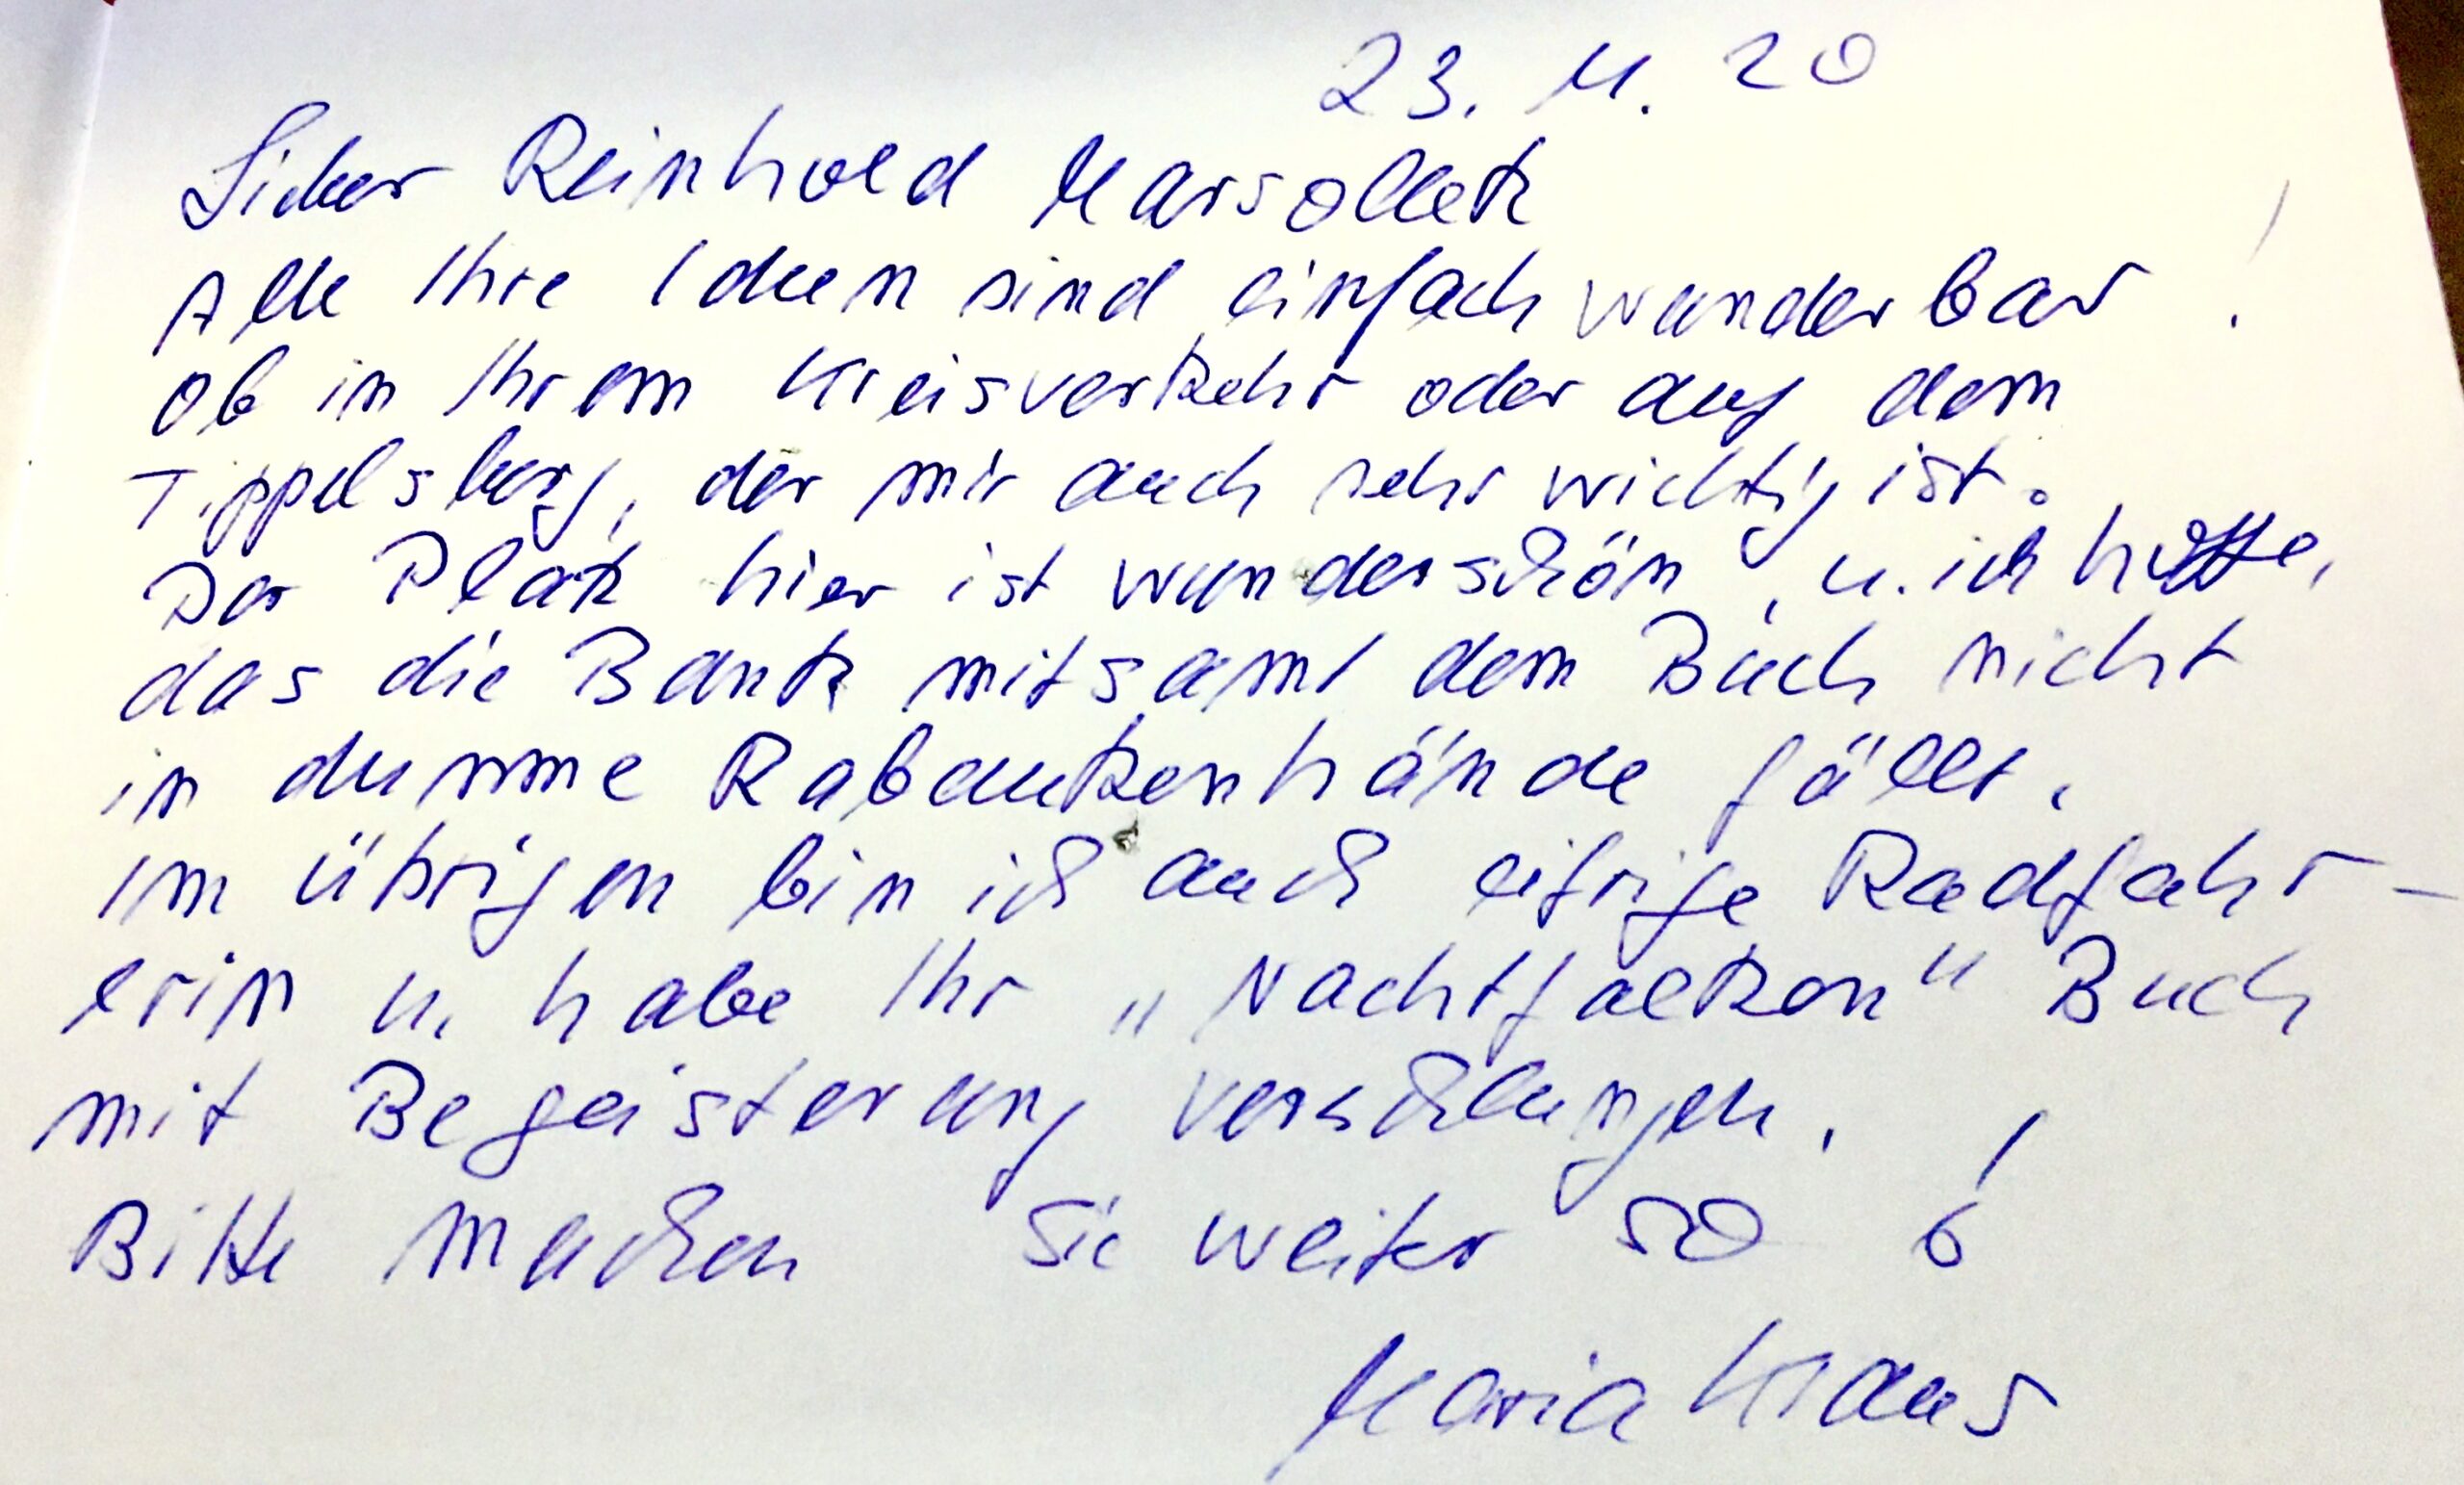 23. 11. 20
Lieber Reinhold Marsolleck
Alle Ihre Ideen sind einfach wunderbar !
Ob in Ihrem Kreisverkehr oder auf dem
Tippelsberg, der mir auch sehr wichtig ist.
Der Platz hier ist wunderschön, u. ich hoffe,
das die Bank mitsamt dem Buch nicht
in dumme Rabaukenhände fällt.
Im übrigen bin ich auch eifrige Radfahr-
erin u. habe Ihr „Nachtfalken" Buch
mit Begeisterung verschlungen.
Bitte machen Sie weiter so !
Maria Kraus